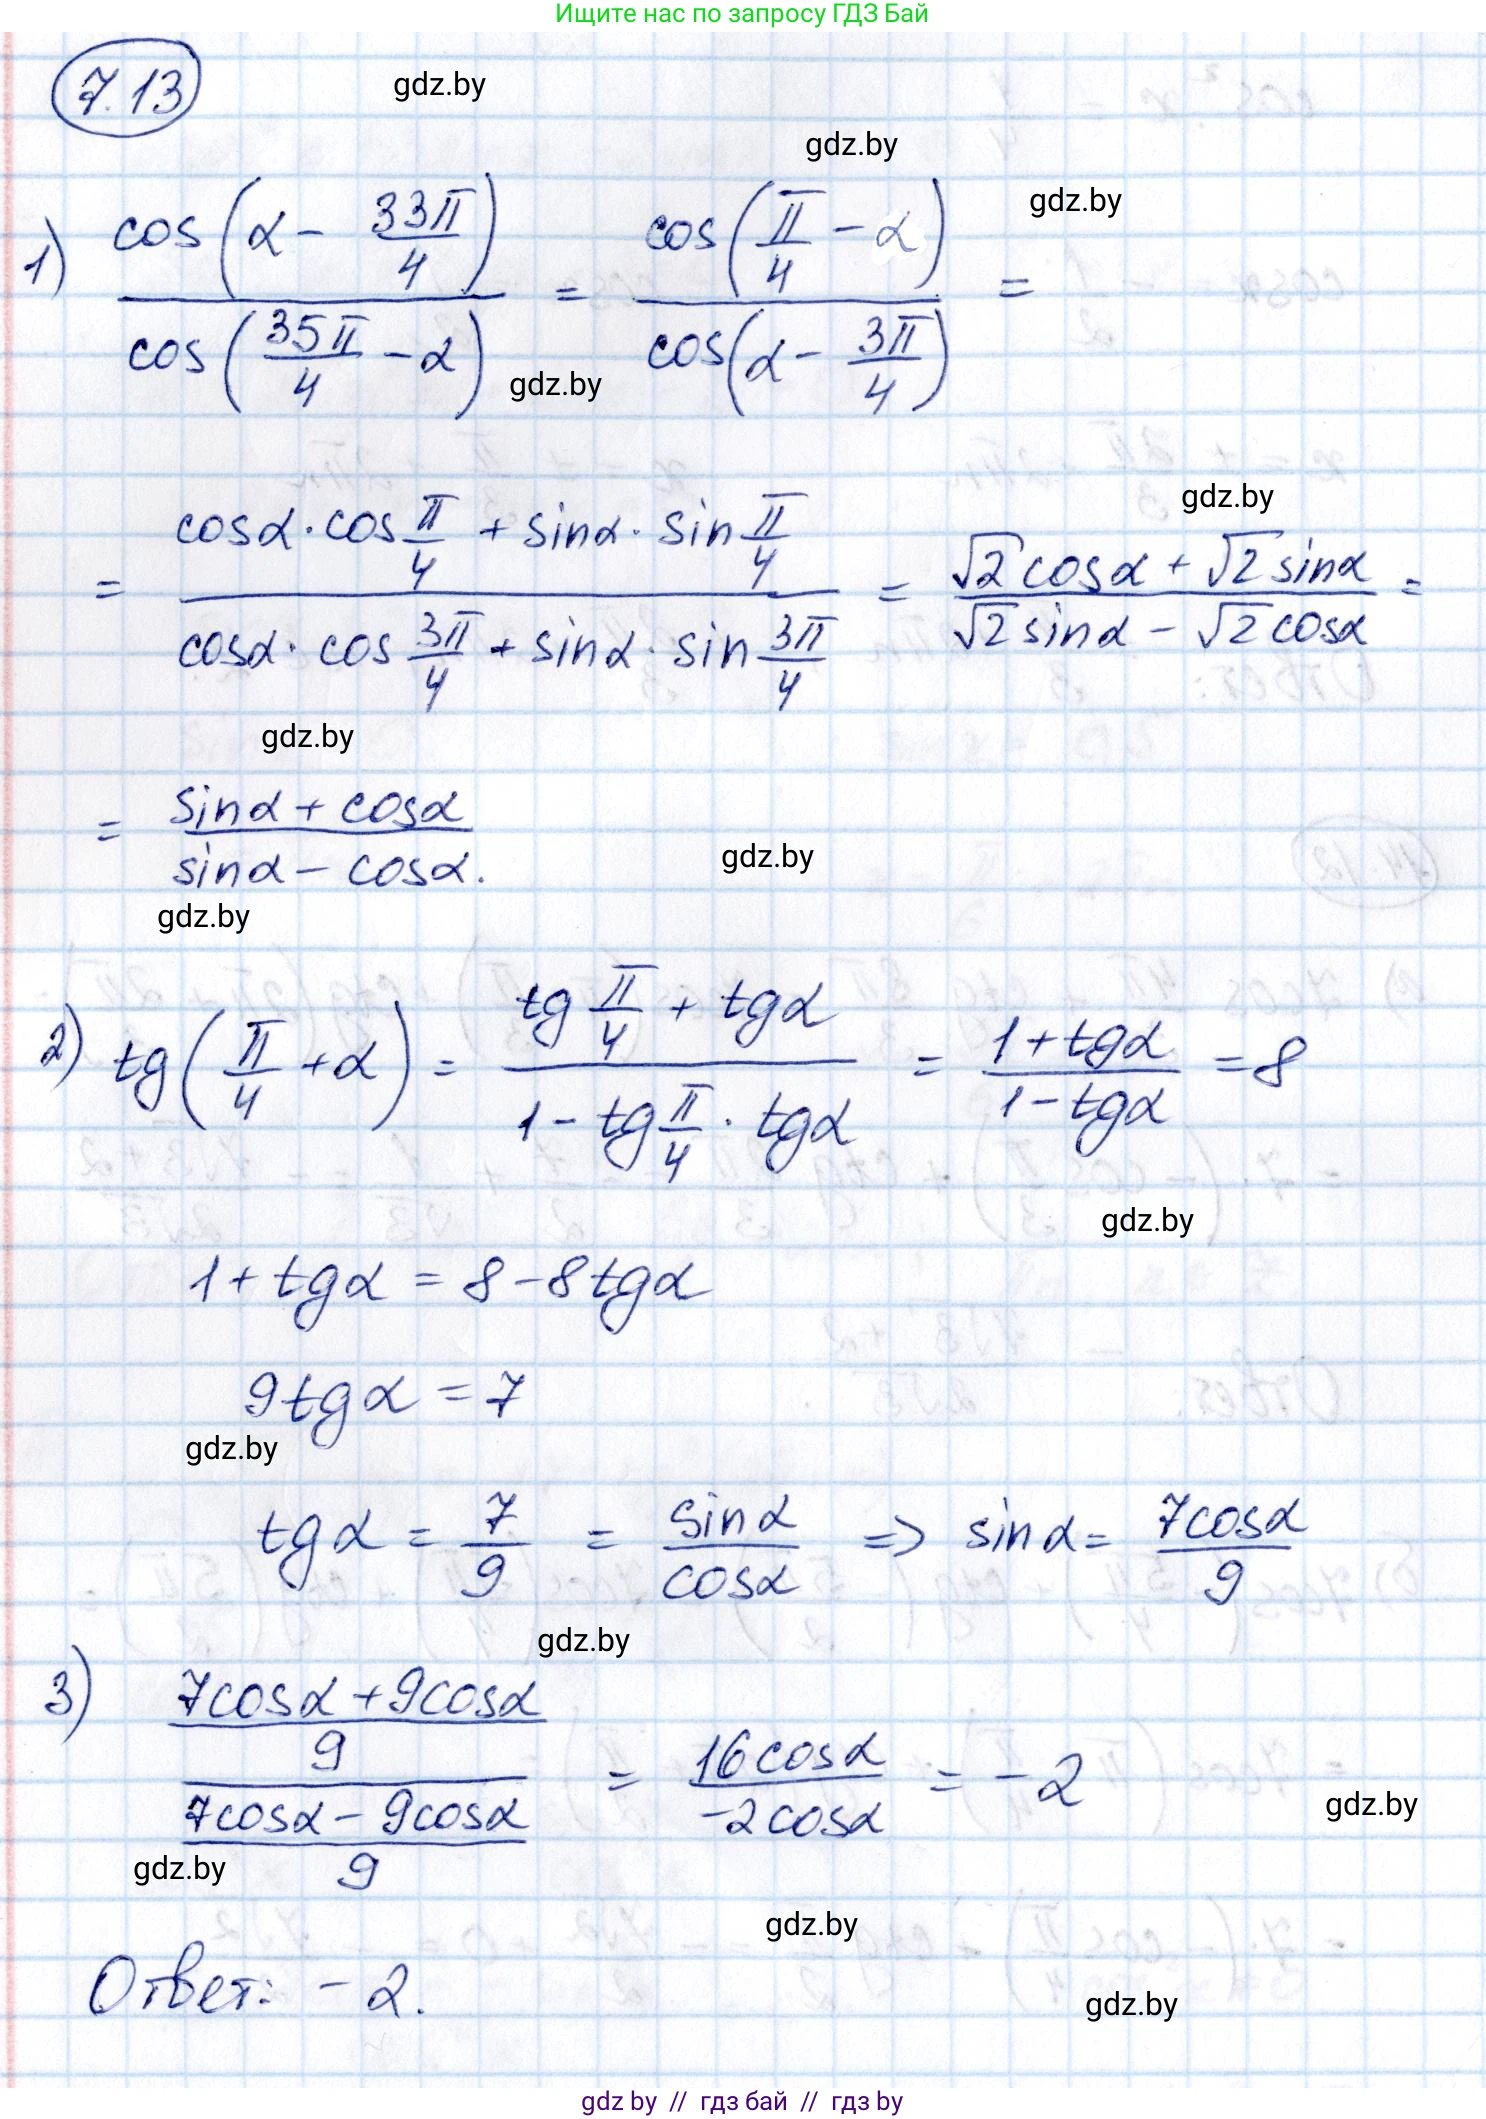 Ищите нас по запросу ГДЗ Бай
7.13
gdz.by
gdz.by
gdz.by
1) cos(α − 33π/4) / cos(35π/4 − α) = cos(π/4 − α) / cos(α − 3π/4) =
gdz.by
gdz.by
= (cosα · cos π/4 + sinα · sin π/4) / (cosα · cos 3π/4 + sinα · sin 3π/4) = (√2 cosα + √2 sinα) / (√2 sinα − √2 cosα) =
gdz.by
= (sinα + cosα) / (sinα − cosα).
gdz.by
gdz.by
2) tg(π/4 + α) = (tg π/4 + tgα) / (1 − tg π/4 · tgα) = (1 + tgα) / (1 − tgα) = 8
gdz.by
1 + tgα = 8 − 8tgα
9tgα = 7
gdz.by
tgα = 7/9 = sinα/cosα => sinα = 7cosα/9
gdz.by
3) ((7cosα + 9cosα)/9) / ((7cosα − 9cosα)/9) = 16cosα / −2cosα = −2
gdz.by
gdz.by
gdz.by
Ответ: −2.
gdz.by
gdz.by // гдз бай // гдз.by